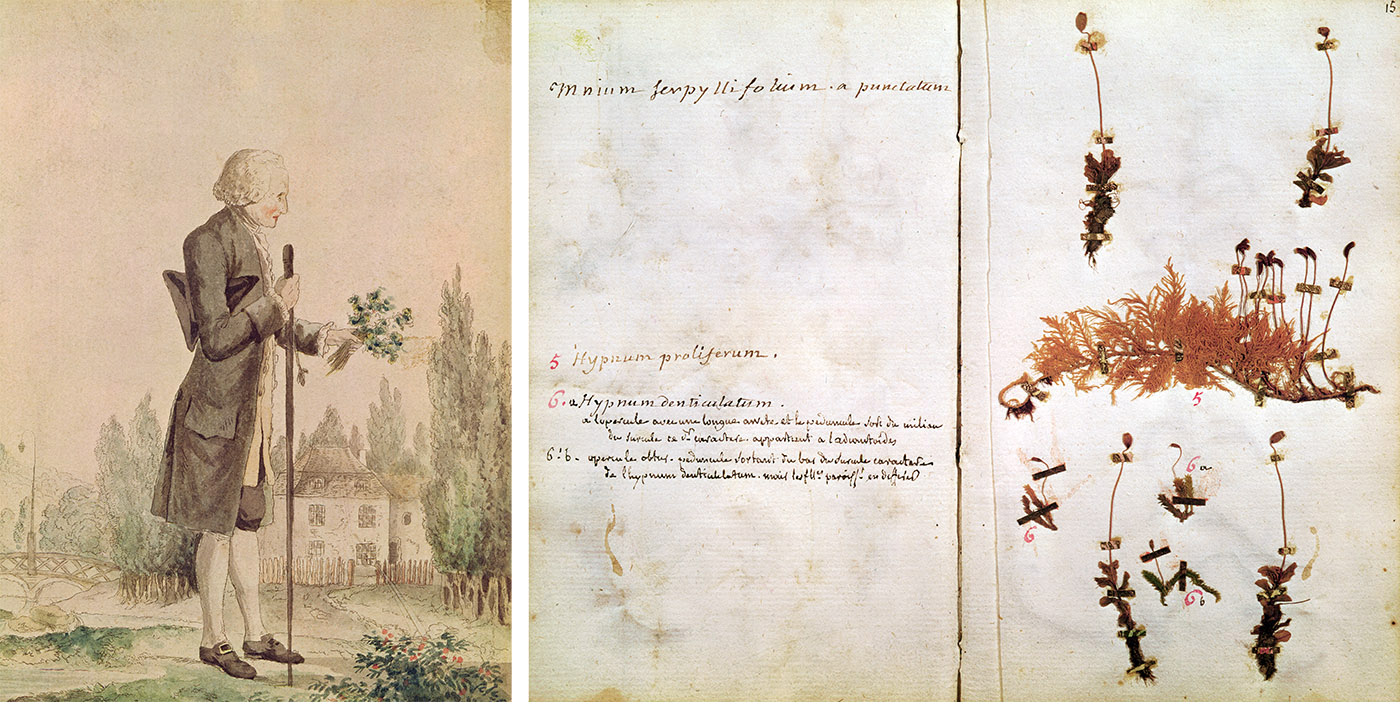 15
Mnium serpyllifolium. a punctatum
5 Hypnum proliferum.
6. a Hypnum denticulatum.
a l'opercule avec une longue arrete et le peduncule sort du milieu
du surcule ce dr. caractere appartient a l'adiantoides
6. b. opercule obtus. peduncule sortant du bas du surcule caractere
de l'hypnum denticulatum. mais les paroiss. en
5
6 a
6
6 b